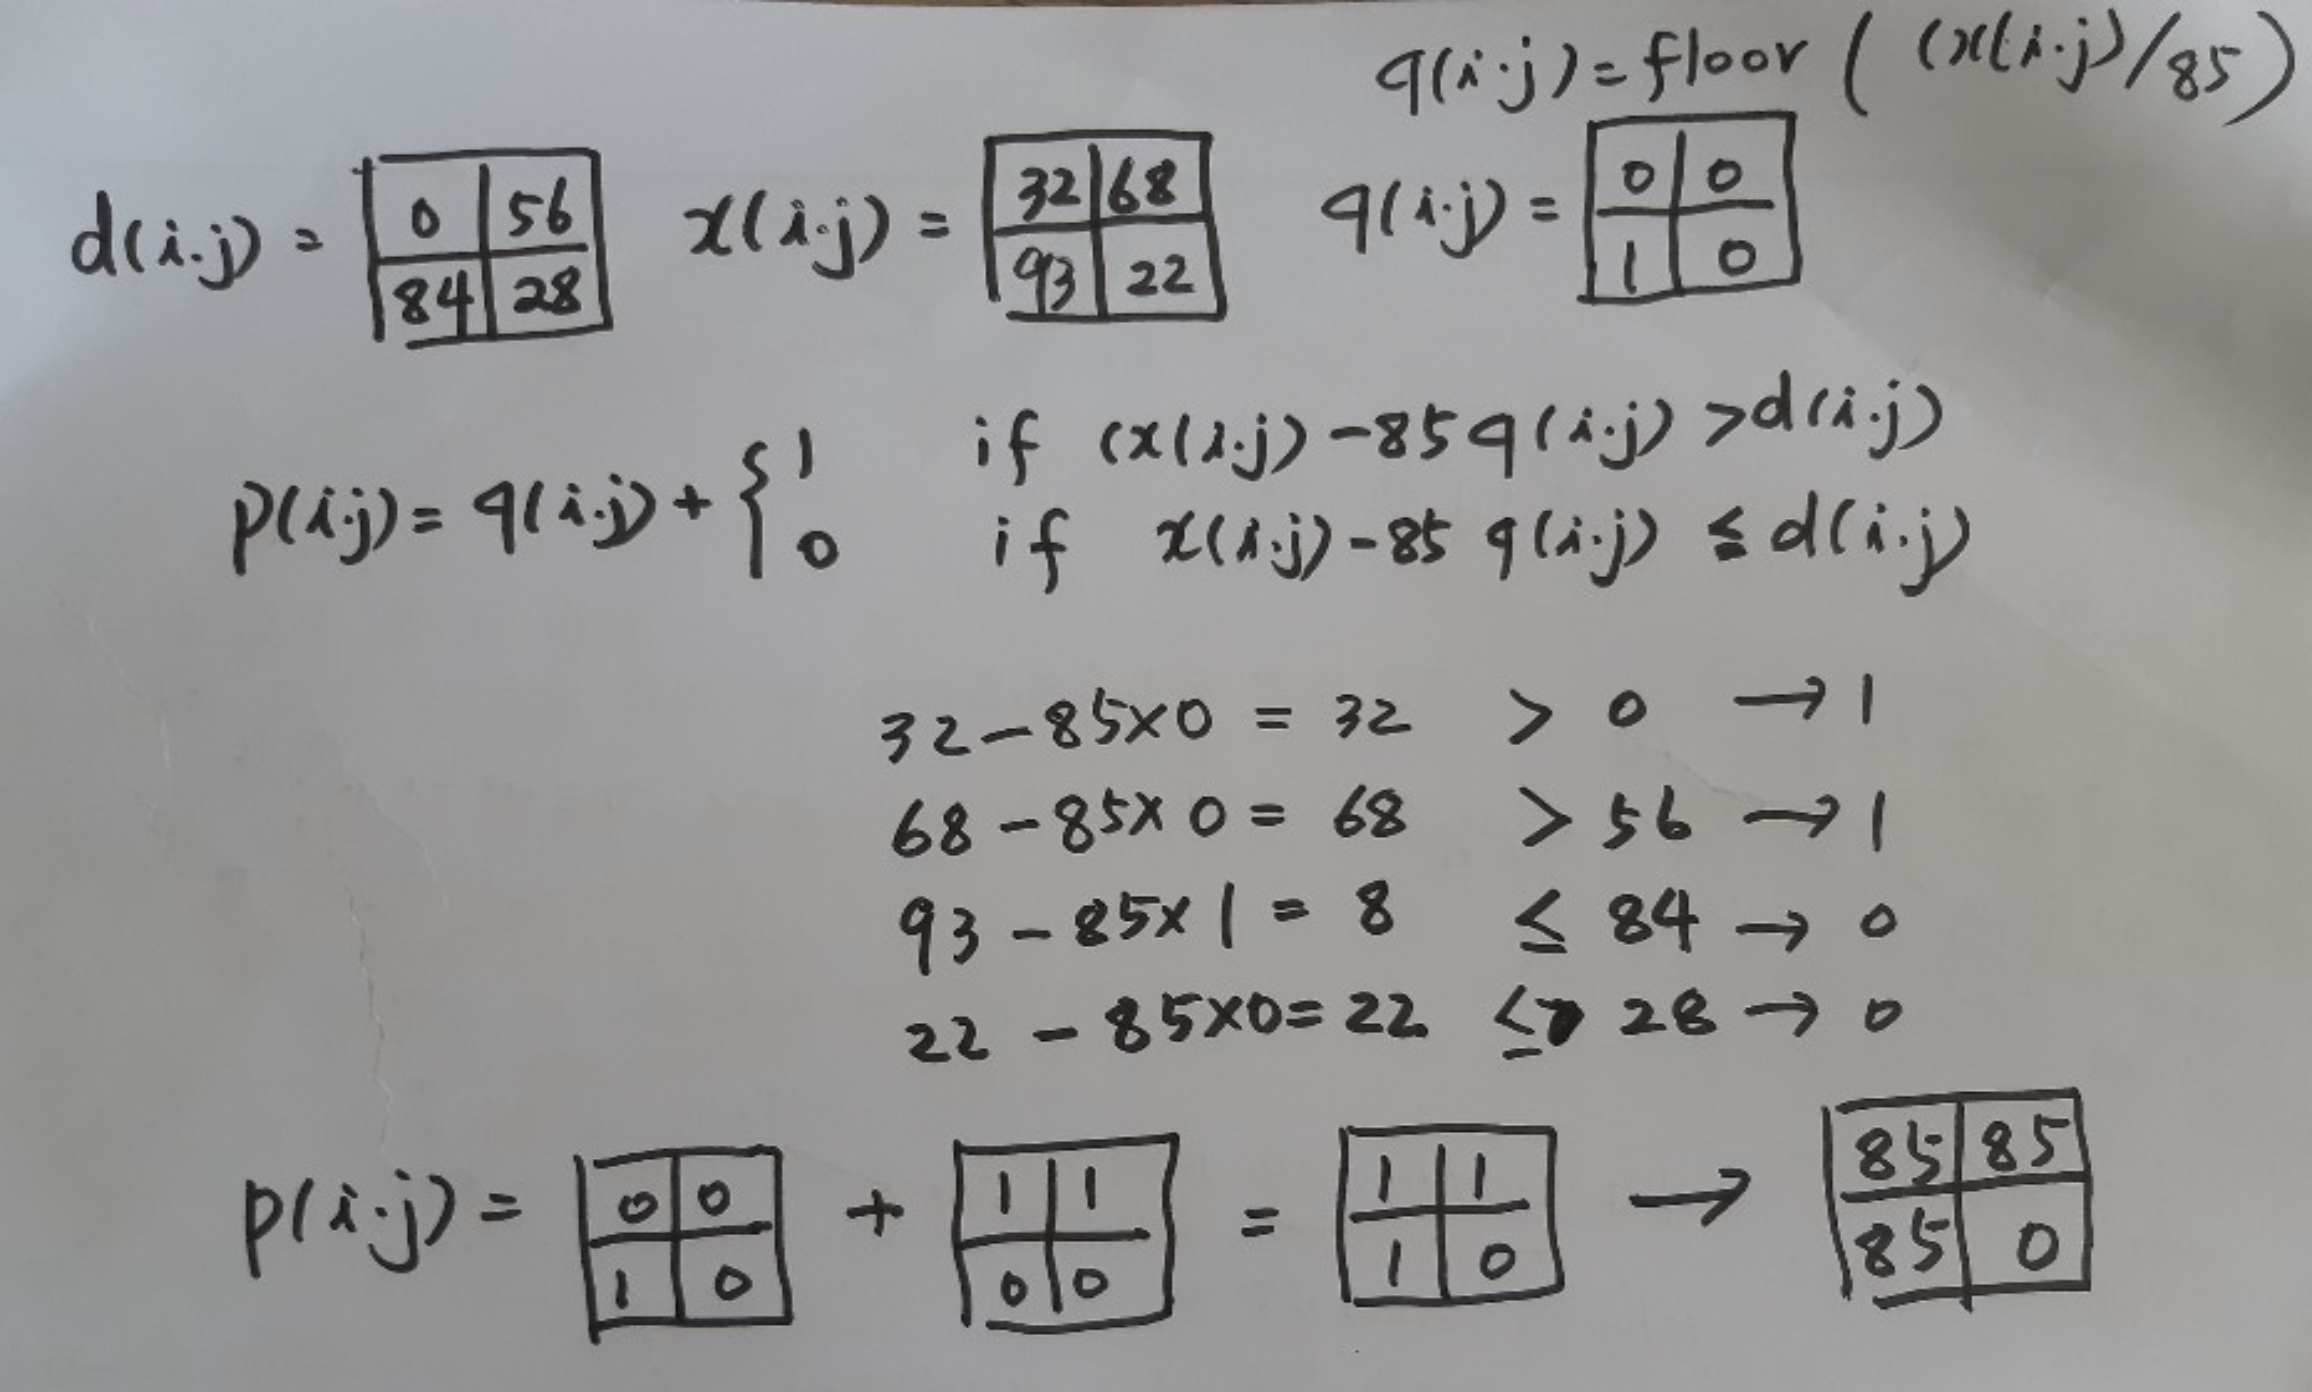 q(i.j)=floor ( (x(i.j)/85)
d(i.j) = 0 56 84 28 x(i.j) = 32 68 93 22 q(i.j) = 0 0 1 0
p(i.j)= q(i.j)+ { 1 if (x(i.j)-85q(i.j) >d(i.j)
0 if x(i.j)-85 q(i.j) ≤ d(i.j)
32-85×0 = 32 > 0 → 1
68-85×0 = 68 > 56 → 1
93-85×1 = 8 ≤ 84 → 0
22-85×0=22 ≤ 28 → 0
p(i.j) = 0 0 1 0 + 1 1 0 0 = 1 1 1 0 → 85 85 85 0